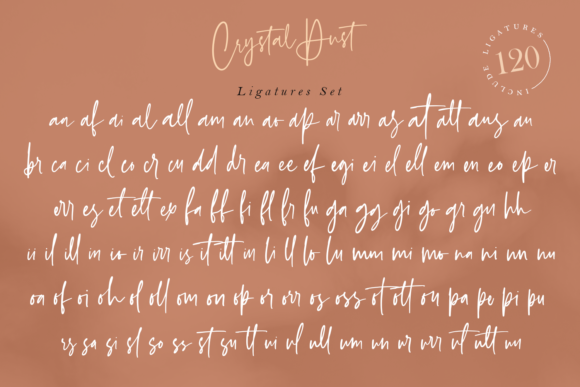 Crystal Dust
INCLUDE LIGATURES
120
Ligatures Set
aa af ai al all am an ao ap ar arr as at att aus au
br ca ci cl co cr cu dd dr ea ee ef egi ei el ell em en eo ep er
err es et ett ex fa ff fi fl fr fu ga gg gi go gr gu hh
ii il ill in io ir irr is it itt iu li ll lo lu mm mi mo na ni nn nu
oa of oi oh ol oll om on op or orr os oss ot ott ou pa pe pi pu
rs sa si sl so ss st su tt ui ul ull um un ur urr ut utt uu